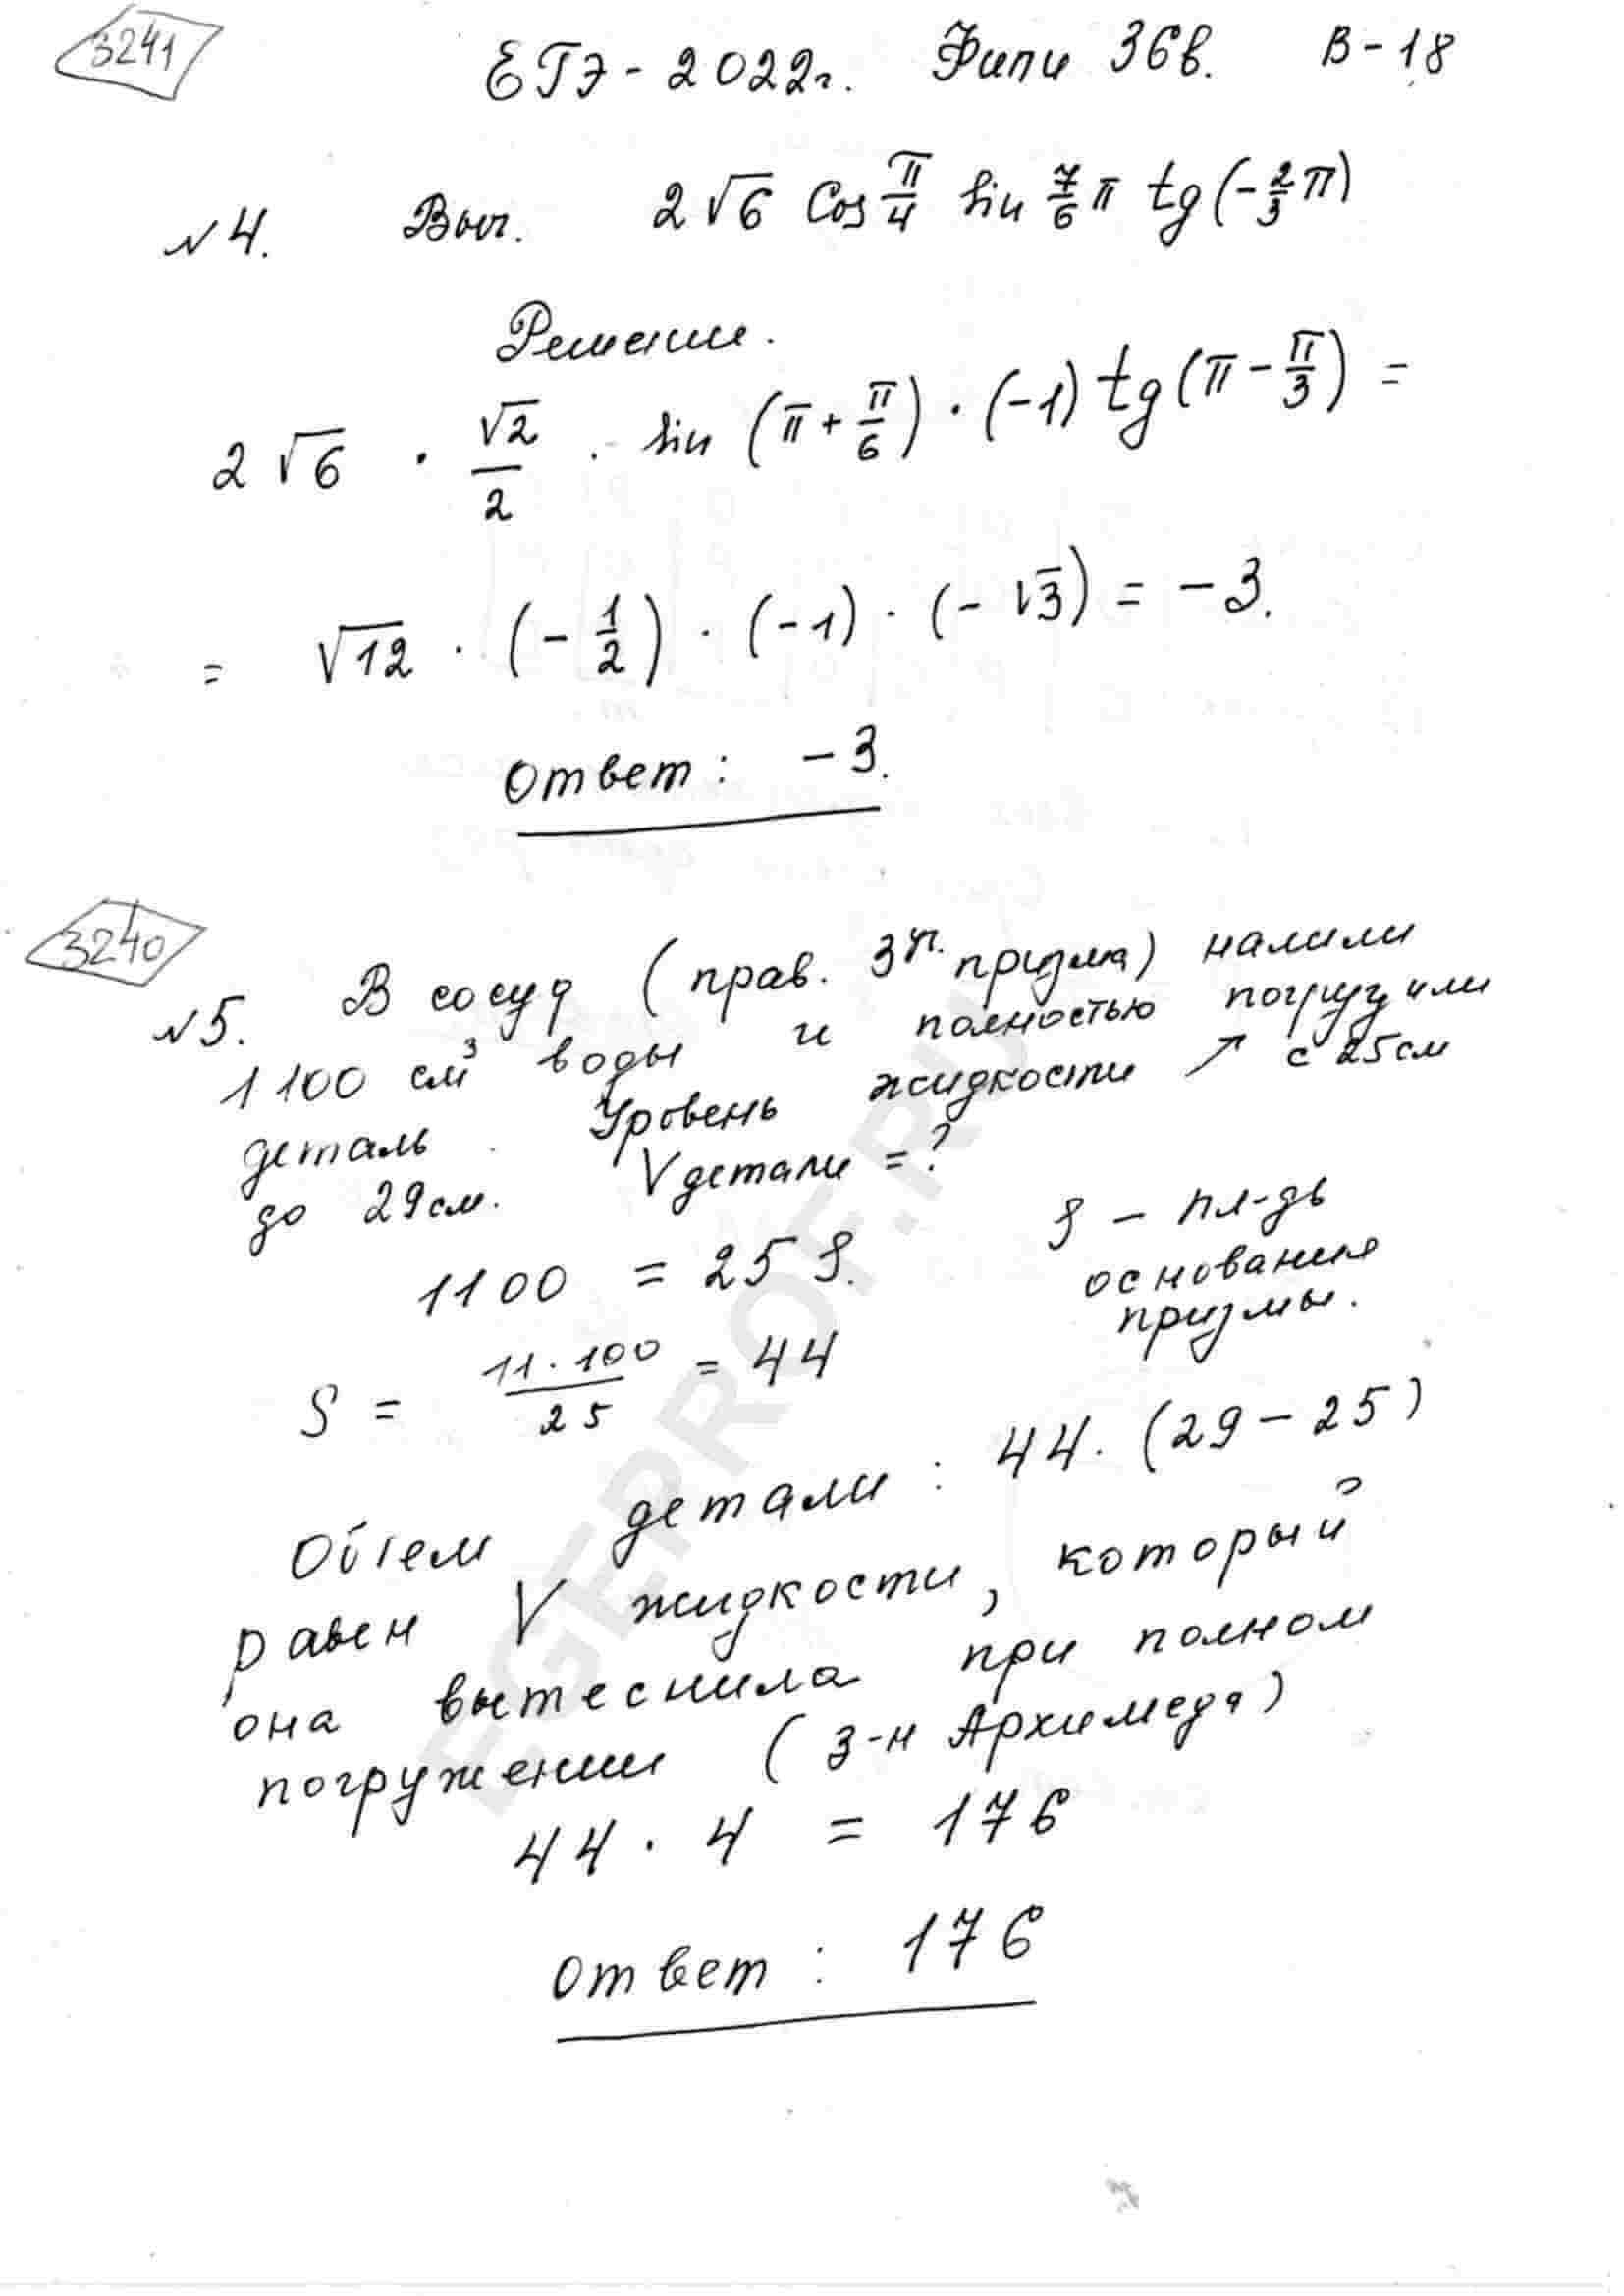 3241
ЕГЭ-2022г. Фипи 36в. В-18
№4. Выч. 2√6 Cos π/4 sin 7/6 π tg(-2/3 π)
Решение.
2√6 · √2/2 · sin (π + π/6) · (-1) tg(π - π/3) =
= √12 · (-1/2) · (-1) · (-√3) = -3.
Ответ: -3.
3240
№5. В сосуд (прав. 3уг. призма) налили
1100 см³ воды и полностью погрузили
деталь. Уровень жидкости ↗ с 25см
до 29см. V детали = ?
1100 = 25 S. S - пл-дь
основания
призмы.
S = 11·100/25 = 44
Объем детали: 44·(29-25)
равен V жидкости, который
она вытеснила при полном
погружении (з-н Архимеда)
44 · 4 = 176
Ответ: 176
EGEPROF.RU